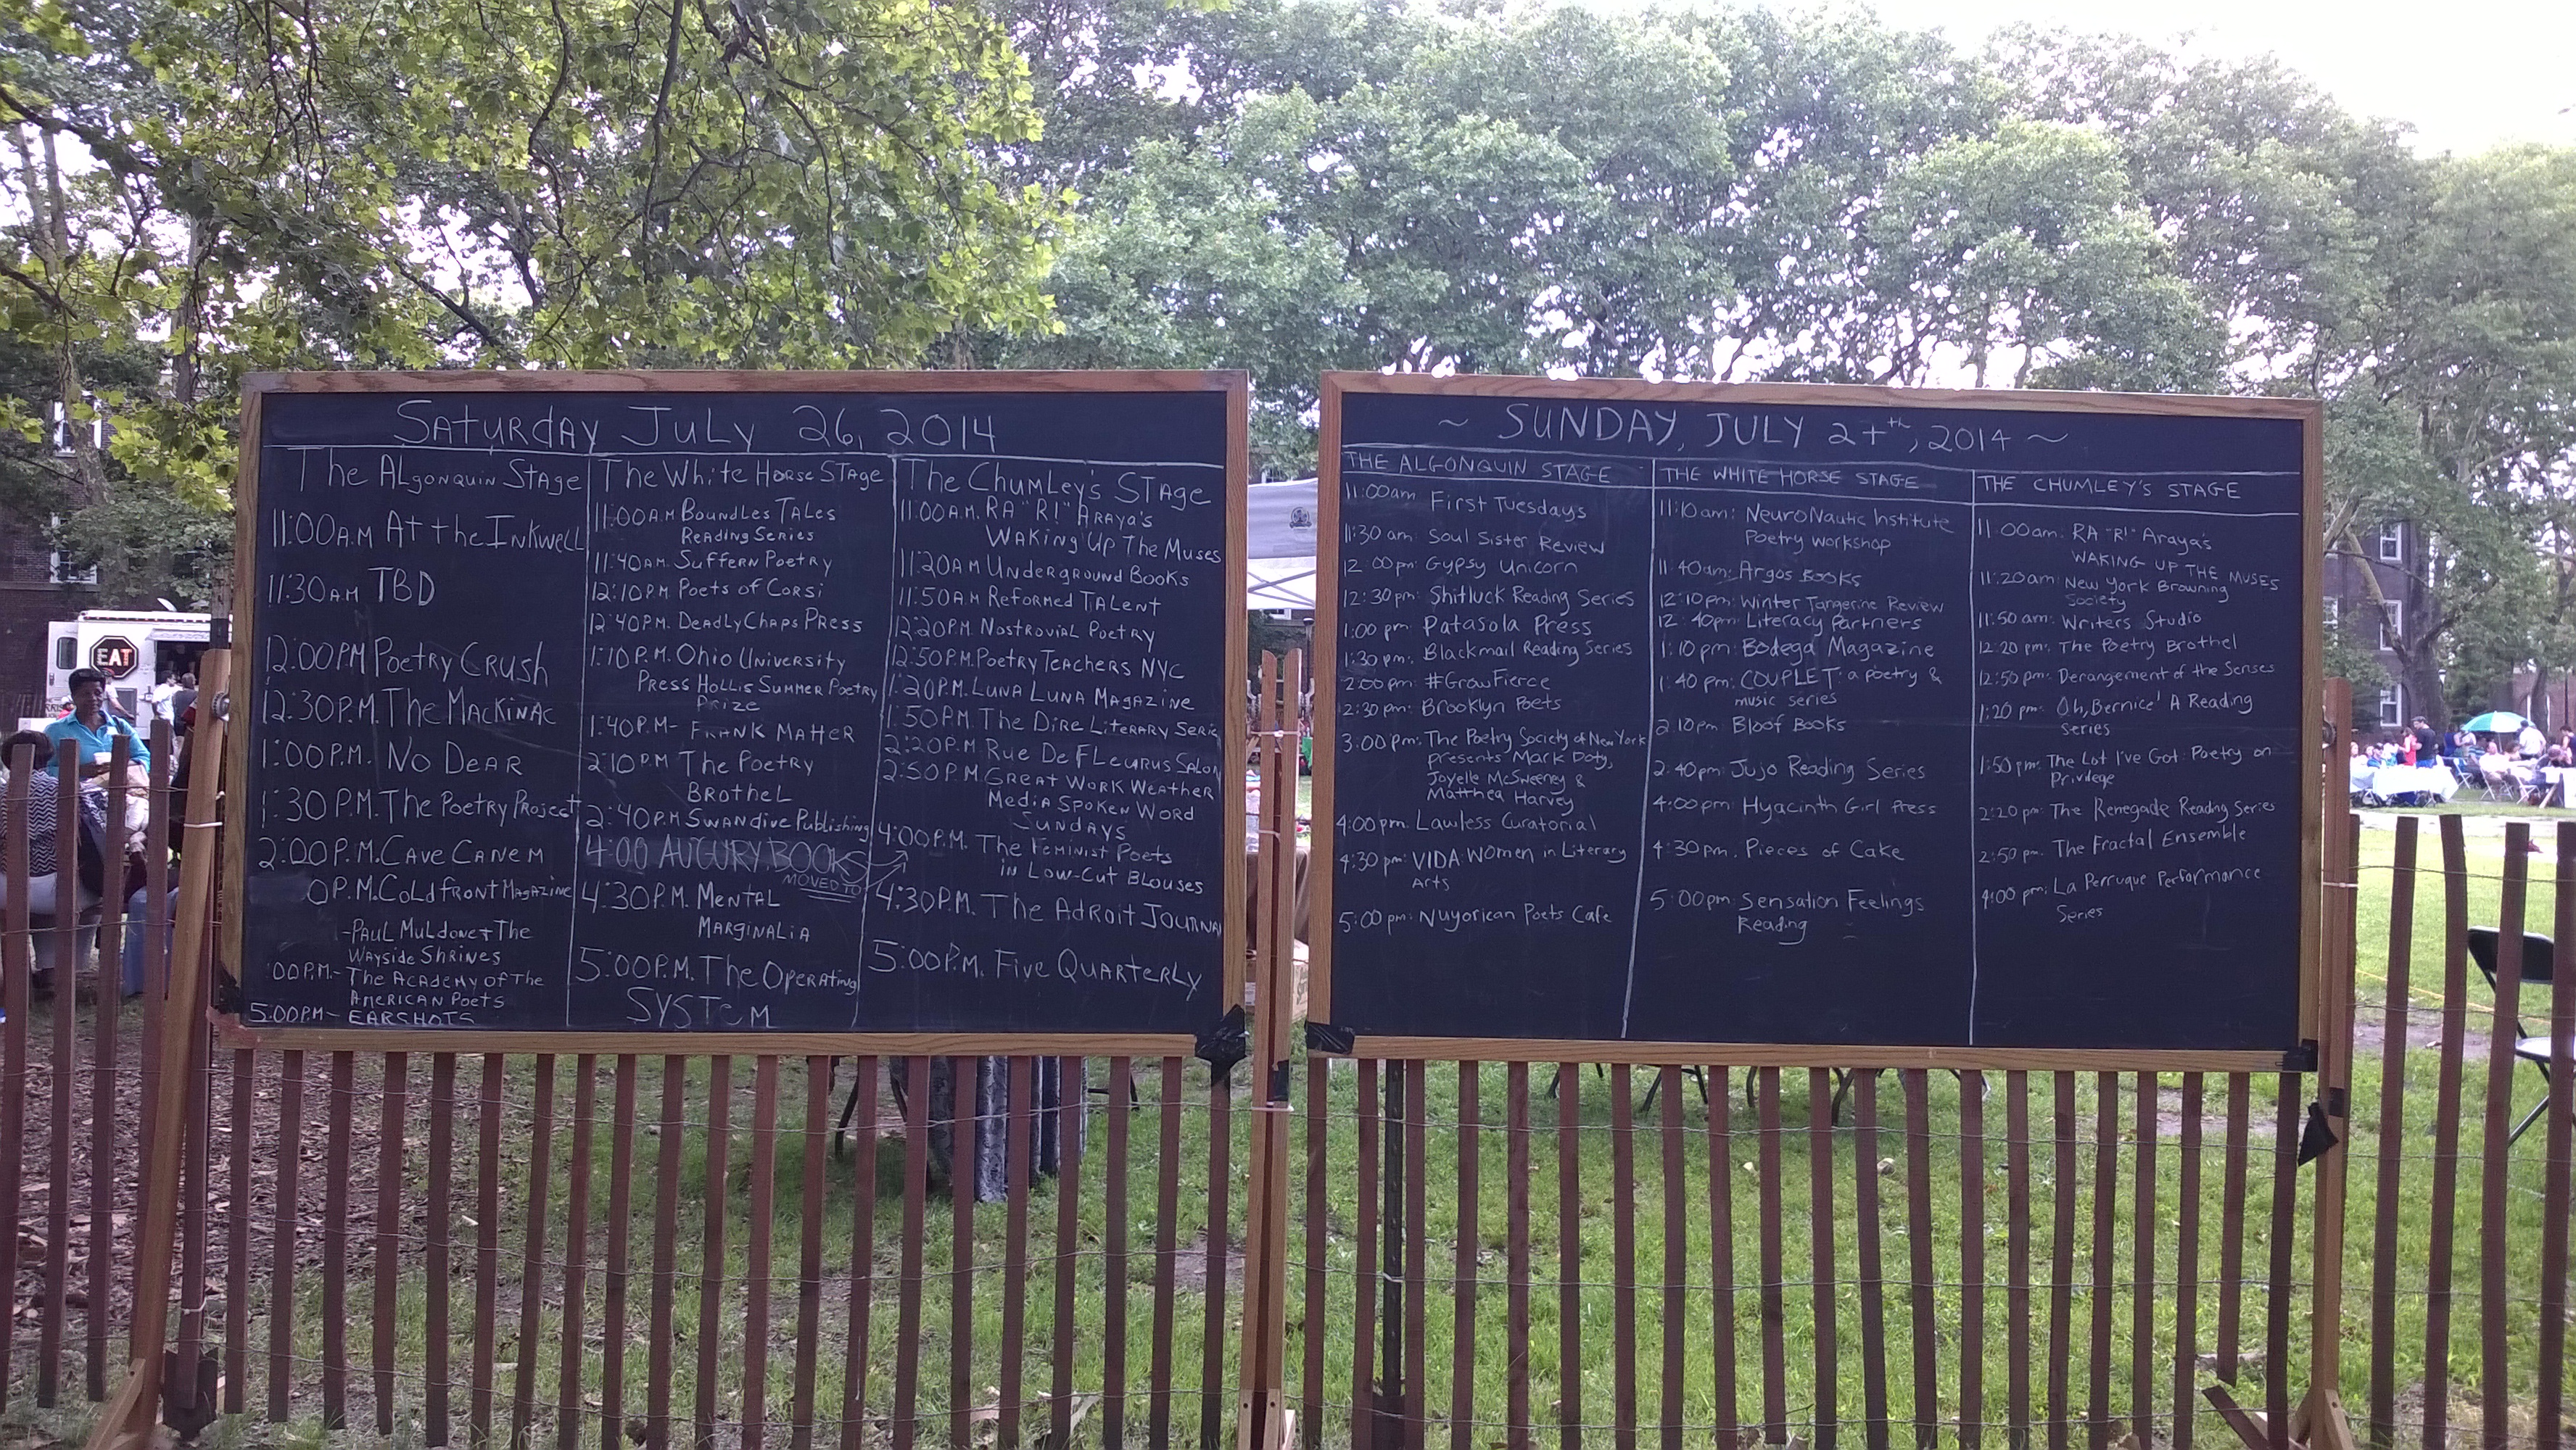 EAT
SATURDAY JULY 26, 2014
The ALgonquin STage
11:00A.M At the InkweLL
11:30AM TBD
12:00PM Poetry Crush
12:30P.M. The MACKiNAC
1:00P.M. No Dear
1:30 P.M. The Poetry Project
2:00P.M. CAVe CANeM
0P.M. COLdfront MagaziNe
-PAUL MuLdone + The
WAYside ShRiNes
:00P.M.- The ACADeMY of The
AMeRICAN Poets
5:00PM- EARSHOTS
The White HORSe STage
11:00A.M BoundLes TALes
ReadiNg SeRies
11:40AM. SufferN Poetry
12:10P.M Poets of CoRSi
12:40P.M. DeadLy Chaps PRess
1:10 P.M. Ohio University
PRess HoLLis SuMMeR PoetRy
PRize
1:40P.M- FRANK MATTER
2:10PM The Poetry
BRotheL
2:40P.M SWANdive PubLishing
4:00 AUGURY BOOKS
MOVED TO
4:30P.M. MeNTAL
MARGiNALiA
5:00P.M. The OpeRAting
SYSTeM
The ChuMLey's STage
11:00A.M. RA "R!" ARaya's
WAKiNg Up The Muses
11:20A.M UNdeRgRouNd Books
11:50A.M RefoRMed TALeNT
12:20P.M. NostRoviaL PoetRy
12:50P.M. PoetRy TeacheRs NYC
1:20P.M. LuNA LuNA MAgAziNe
1:50P.M. The DiRe LiteRARy SeRie
2:20P.M Rue De FLeuRus SaLoN
2:50P.M GReAT WoRK WeatheR
MediA SpoKeN WoRd
SuNdAYs
4:00P.M. The FeMiNist Poets
iN Low-Cut BLouses
4:30P.M. The AdRoiT JouRNAL
5:00P.M. Five QuARTeRLy
~ SUNDAY, JULY 27th, 2014 ~
THE ALGONQUIN STAGE
11:00am First Tuesdays
11:30 am: Soul Sister Review
12:00pm: Gypsy Unicorn
12:30 pm: Shitluck Reading Series
1:00 pm: Patasola Press
1:30 pm: Blackmail Reading Series
2:00 pm: #GrowFierce
2:30 pm: Brooklyn Poets
3:00 pm: The Poetry Society of New York
presents Mark Doty,
Joyelle McSweeney &
Matthea Harvey
4:00 pm: Lawless Curatorial
4:30 pm: VIDA: Women in Literary
Arts
5:00 pm: Nuyorican Poets Cafe
THE WHITE HORSE STAGE
11:10 am: NeuroNautic Institute
Poetry workshop
11:40am: Argos Books
12:10pm: Winter Tangerine Review
12:40pm: Literacy Partners
1:10 pm: Bodega Magazine
1:40 pm: COUPLET: a poetry &
music series
2:10pm: Bloof Books
2:40pm: Jujo Reading Series
4:00 pm: Hyacinth Girl Press
4:30 pm. Pieces of Cake
5:00pm: Sensation Feelings
Reading
THE CHUMLEY'S STAGE
11:00am: RA "R!" Araya's
WAKING UP THE MUSES
11:20am: New York Browning
Society
11:50 am: Writers Studio
12:20 pm: The Poetry Brothel
12:50 pm: Derangement of the Senses
1:20 pm: Oh, Bernice! A Reading
Series
1:50 pm: The Lot I've Got: Poetry on
Privilege
2:20 pm: The Renegade Reading Series
2:50 pm: The Fractal Ensemble
4:00 pm: La Perruque Performance
Series